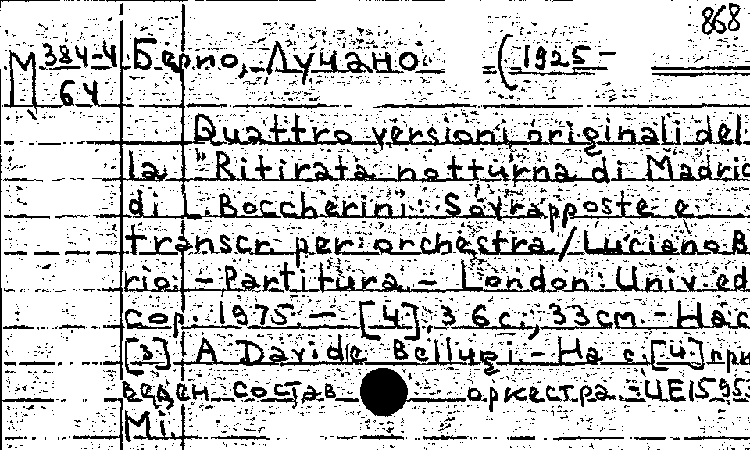 868
М 384-4 Берио, Лучано (1925-
64
Quattro versioni originali del
la "Ritirata notturna di Madrid
di L. Boccherini: Sovrapposte e
transcr. per orchestra / Luciano B
rio. - Partitura - London: Univ. ed
cop. 1975. - [4], 36 с.; 33 см. - На с
[3] A Davide Bellugi. - На с. [4] при
веден состав оркестра. - UE 1595
Mi.